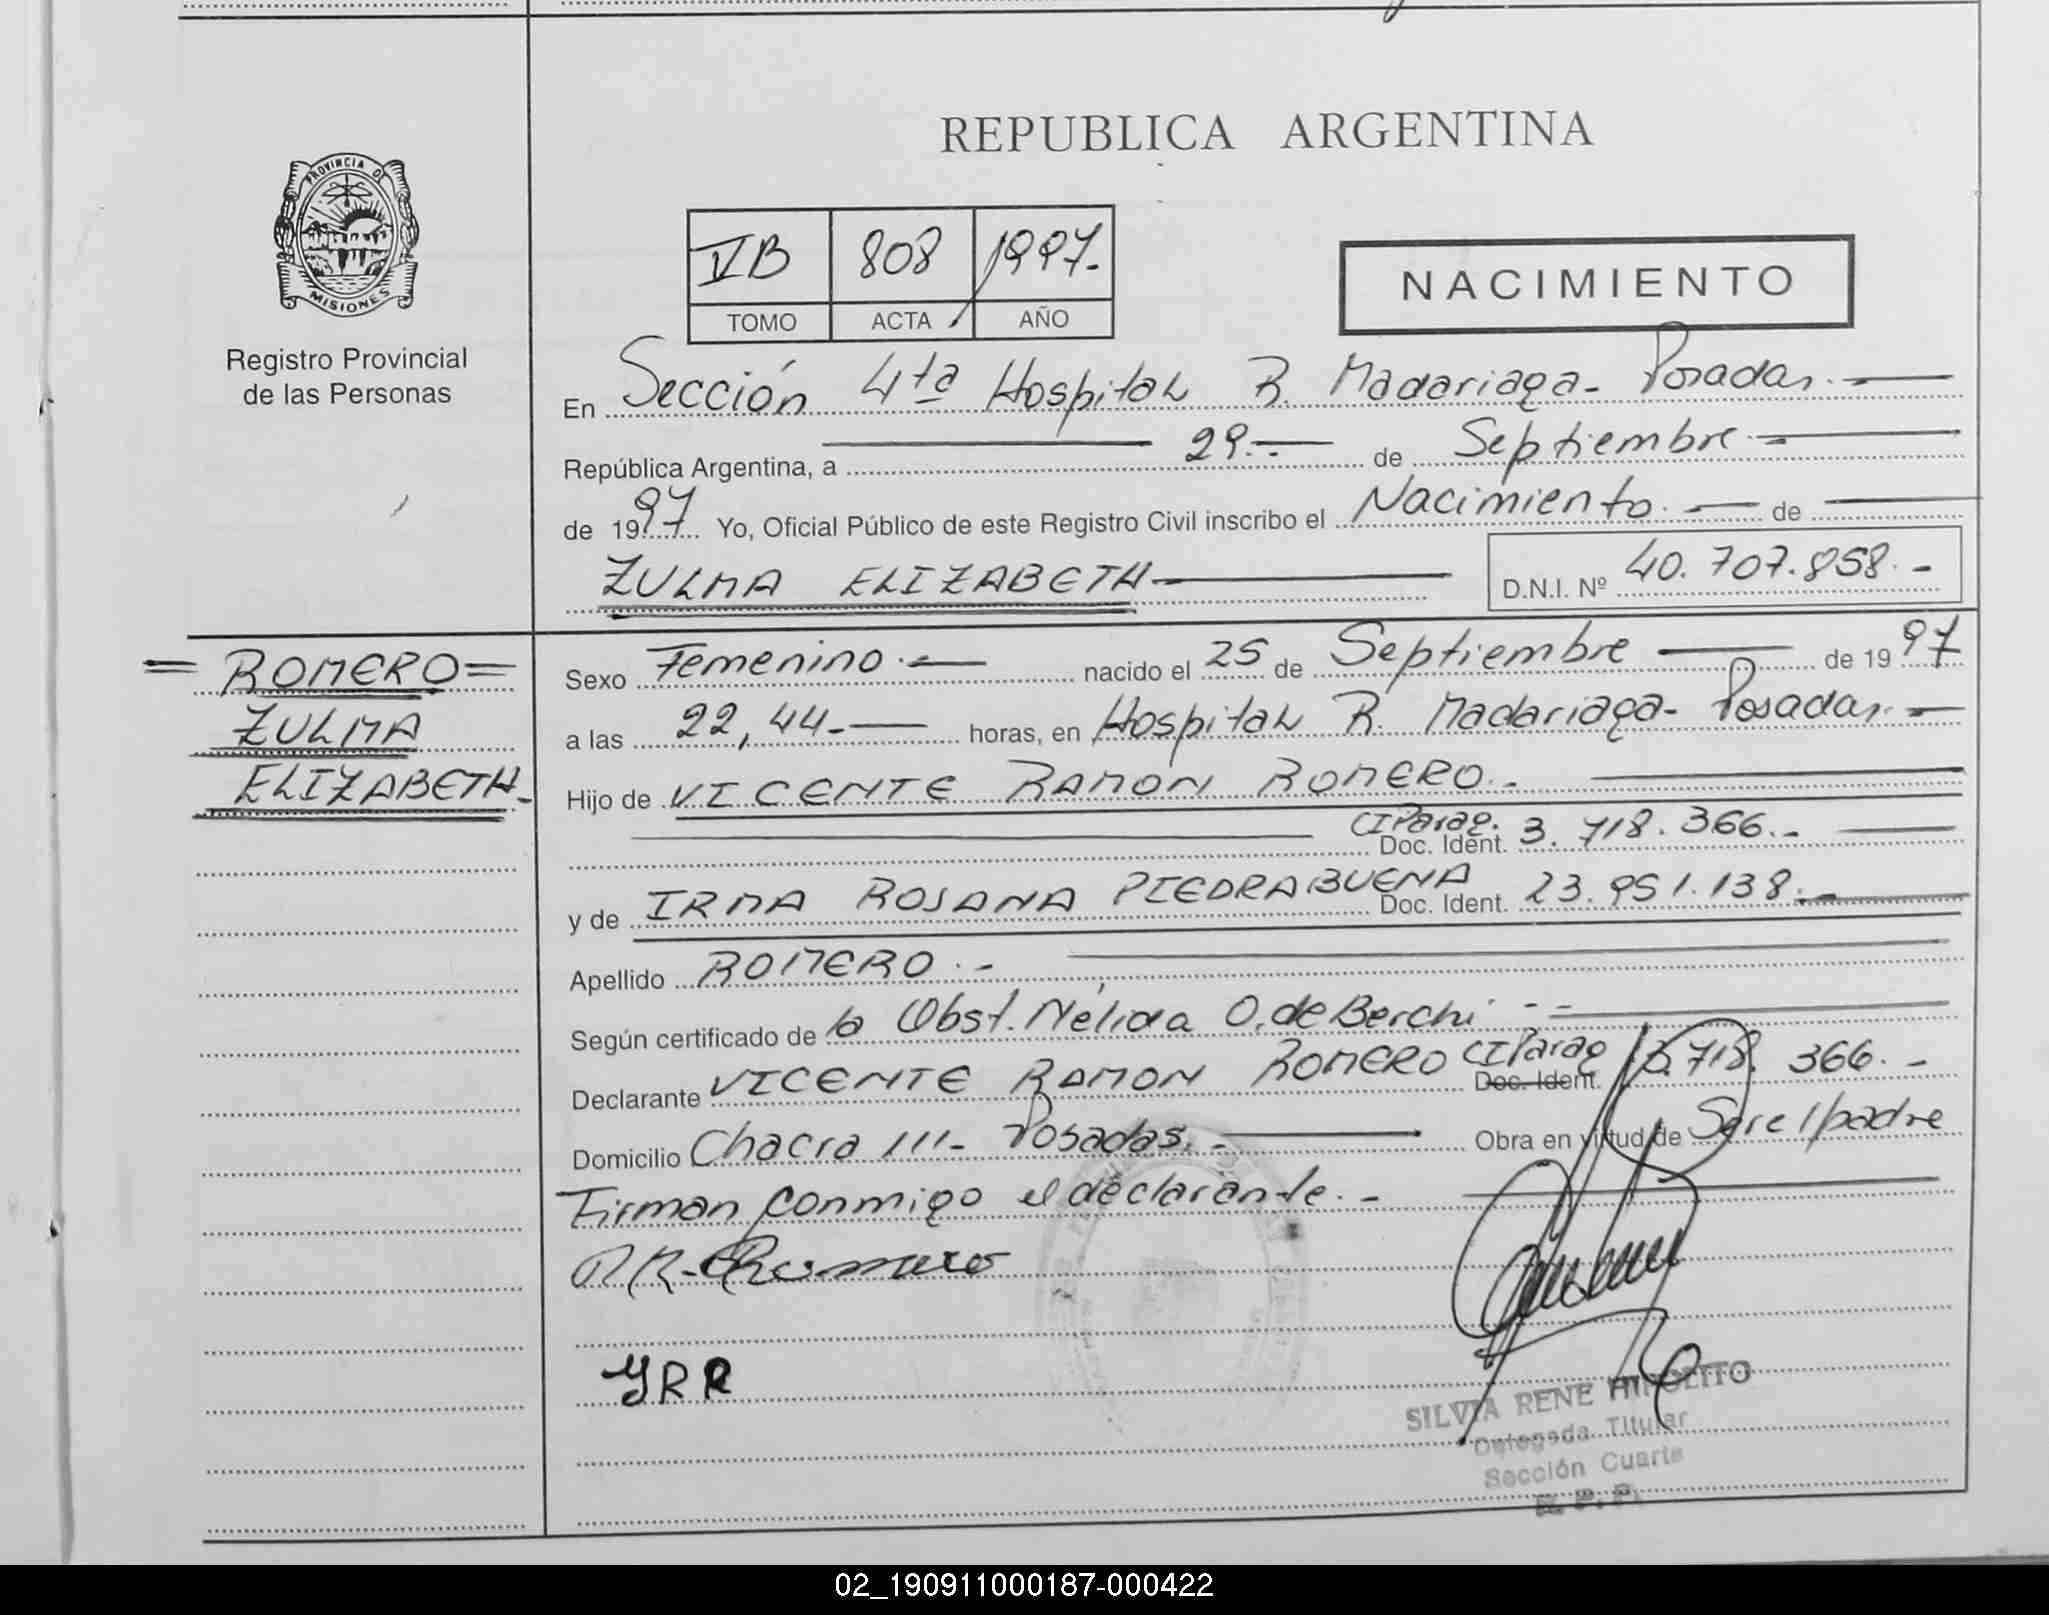 REPUBLICA ARGENTINA
PROVINCIA DE
MISIONES
Registro Provincial
de las Personas
VB 808 1997.-
TOMO ACTA AÑO
NACIMIENTO
En Sección 4ta Hospital R. Madariaga- Posadas.-
República Argentina, a 29.- de Septiembre.-
de 1997 Yo, Oficial Público de este Registro Civil inscribo el Nacimiento.- de
ZULMA ELIZABETH- D.N.I. Nº 40.707.858.-
=ROMERO=
ZULMA
ELIZABETH-
Sexo Femenino.- nacido el 25 de Septiembre de 1997
a las 22,44.- horas, en Hospital R. Madariaga- Posadas.-
Hijo de VICENTE RAMON ROMERO.-
CI Parag. Doc. Ident. 3.718.366.-
y de IRMA ROSANA PIEDRABUENA Doc. Ident. 23.951.138.-
Apellido ROMERO.-
Según certificado de la Obst. Nélida O. de Berchi.--
Declarante VICENTE RAMON ROMERO CI Parag Doc. Ident. 3.718.366.-
Domicilio Chacra 111- Posadas.- Obra en virtud de Ser el padre
Firman conmigo el declarante.-
Romero
YRR
SILVIA RENE HIPOLITO
Delegada Titular
Sección Cuarta
R. P. P.
02_190911000187-000422